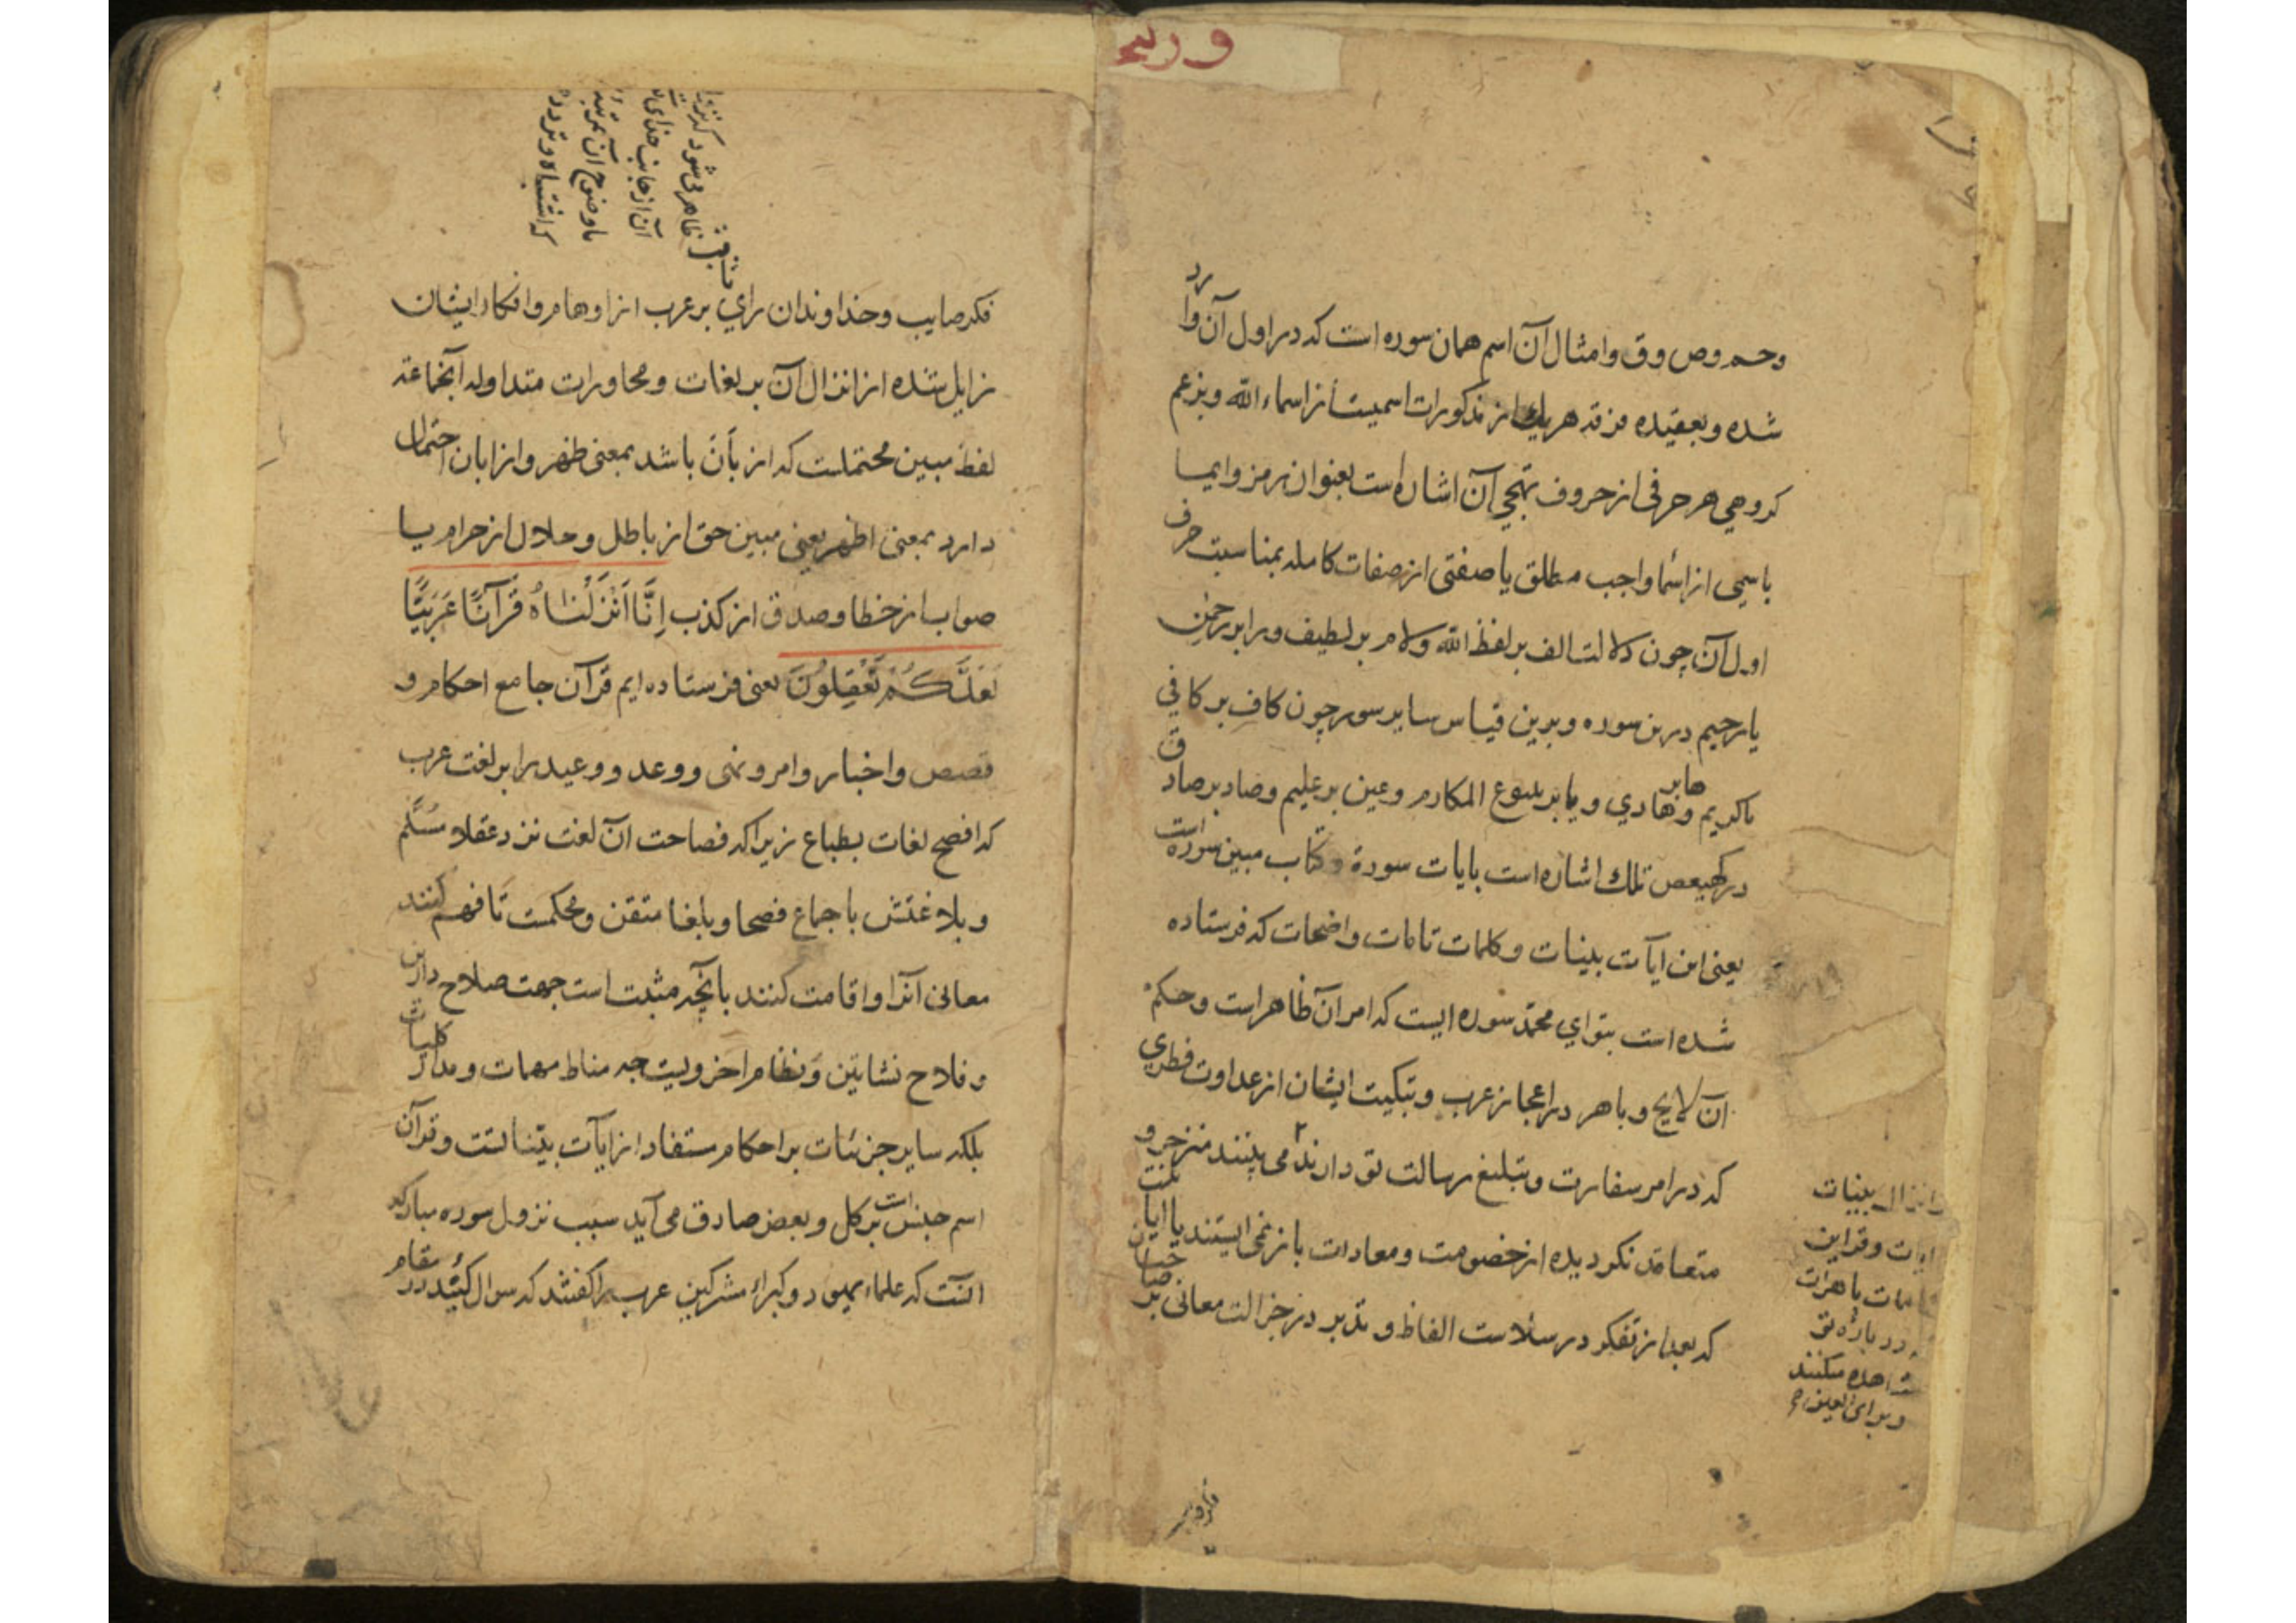 وحم وص وق وامثال آن اسم همان سوره است که در اول آن وارد
شده وبعقیده فرقه هریک از مذکورات اسمیست از اسماء الله وبزعم
کروهی هر حرفی از حروف تهجی آن اشاره است بعنوان رمز وایما
باسمی از اسما واجب مطلق یا صفتی از صفات کامله بمناسبت حرف
اول آن چون دلالت الف بر لفظ الله ولام بر لطیف ورا بر رحمن
یا رحیم درین سوره وبرین قیاس سایر سور چون کاف بر کافی
یا کریم وها بر هادی ویا بر ینبوع المکارم وعین بر علیم وصاد بر صادق
در کهیعص تلک اشاره است بایات سورة وکتاب مبین سوره است
یعنی این ایآت بینات وکلمات تامات واضحات که فرستاده
شده است بتو ای محمد سوره ایست که امر آن ظاهر است وحکم
آن لایح وباهر در اعجاز عرب وتبکیت ایشان از عداوت فطری
که در امر سفارت وتبلیغ رسالت تو دارند می بینند منزجر و
متعاقد نکردیده از خصومت ومعادات باز نمی ایستند یا ایاتیست
که بعد از تفکر در سلاست الفاظ وتدبر در جزالت معانی بر صاحبان
وانزال بینات
وقراین
باهرات
در باره تو
مشاهده میکنند
وبرای العین
ظاهر می شود که نزول
آن از جانب خدای
باوضوح آن بمرتبه
که اشتباه وتردد
فکر صایب وخداوندان رای ثاقب بر عرب از اوهام وافکار ایشان
زایل شده از انزال آن بر لغات ومحاورات متداوله آنجماعة
لفظ مبین محتملست که از بان باشد بمعنی ظهر واز ابان احتمال
دارد بمعنی اظهر یعنی مبین حق از باطل وحلال از حرام یا
صواب از خطا وصدق از کذب اِنَّا اَنْزَلْنَاهُ قُرْآنًا عَرَبِیًّا
لَعَلَّکُمْ تَعْقِلُونَ یعنی فرستاده ایم قرآن جامع احکام و
قصص واخبار وامر ونهی ووعد ووعید را بر لغت عرب
که افصح لغات بطباع زیرا که فصاحت آن لغت نزد عقلا مسَلّم
وبلاغتش باجماع فصحا وبلغا متقن ومحکمست تا فهم کنند
معانی آنرا واقامت کنند بانچه مثبت است جهت صلاح دارین
وفلاح نشاتین ونظام اخرویت چه مناط مهمات ومدار کلیات
بلکه سایر جزئیات بر احکام مستفاد از ایآت بینا تست وقرآن
اسم جنس است بر کل وبعض صادق می آید سبب نزول سوره مبارکه
انست که علماء یهود وکبراء مشرکین عرب را گفتند که سوال کنید در مقام